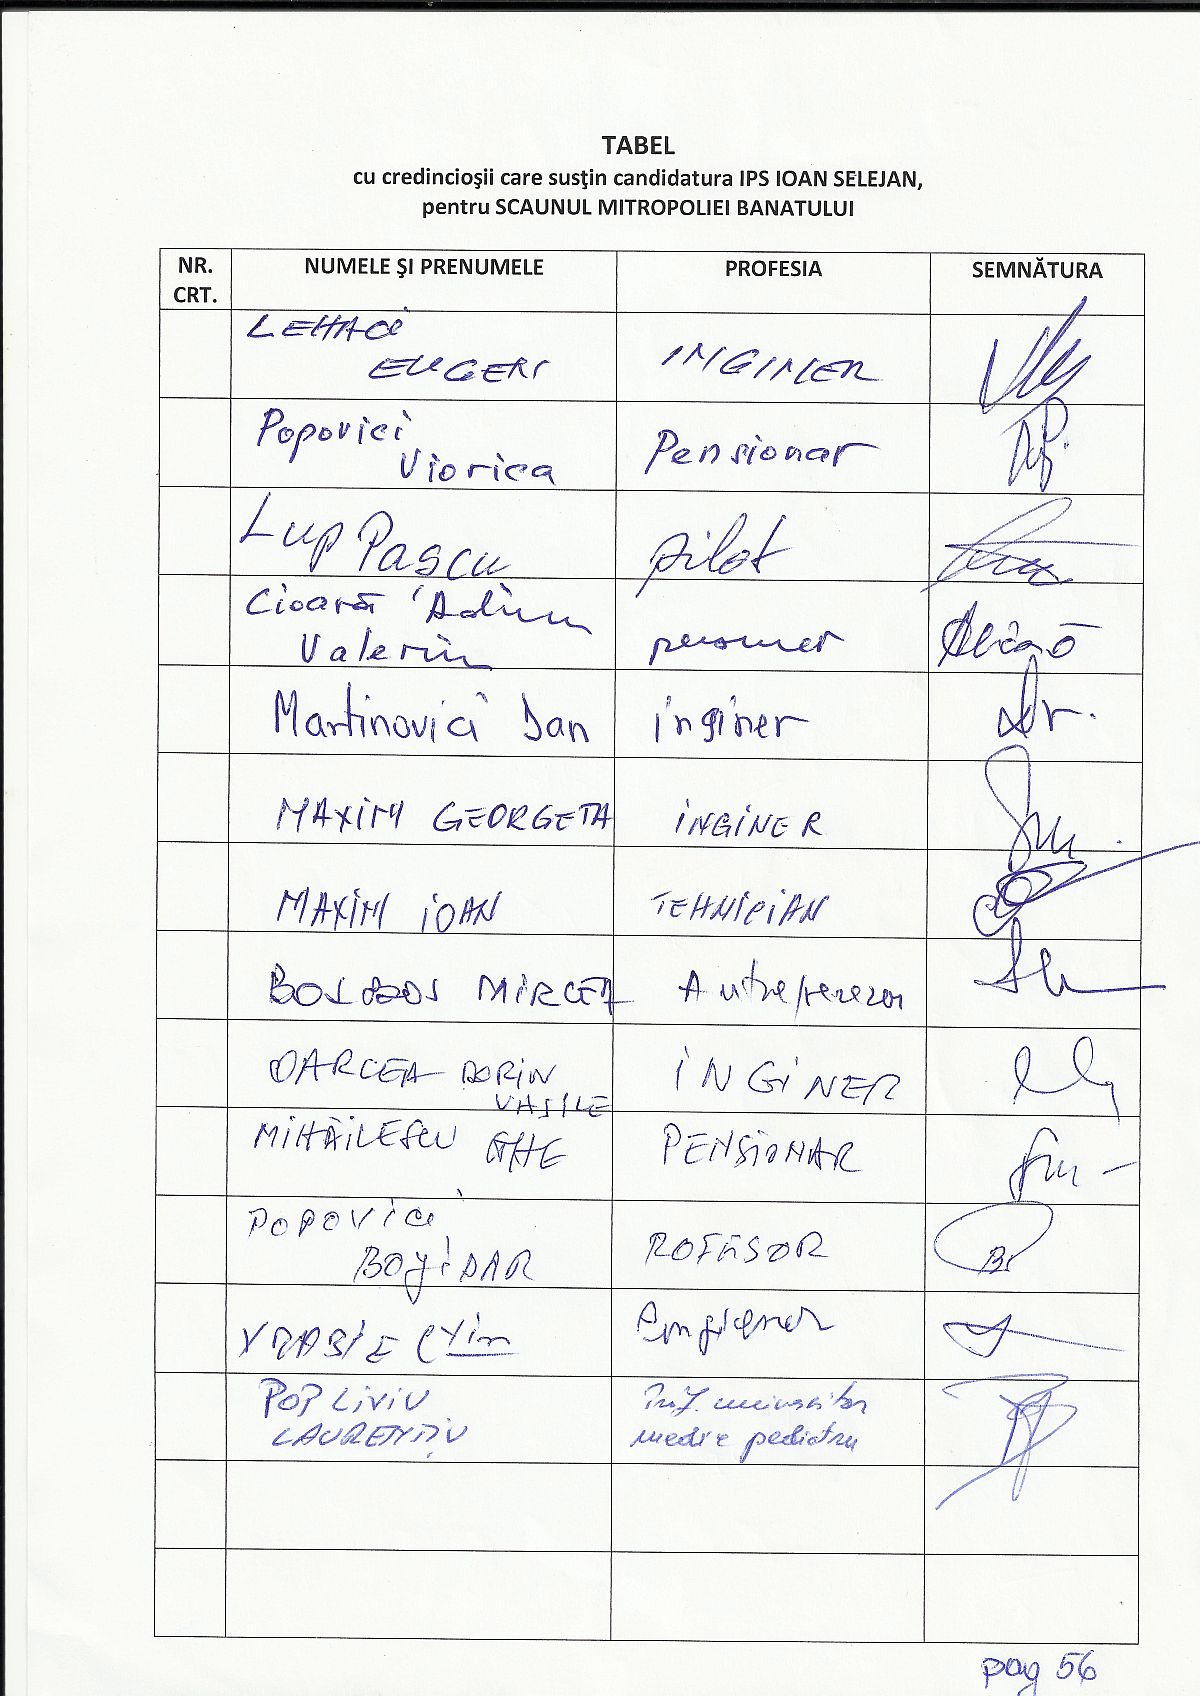 TABEL
cu credincioşii care susţin candidatura IPS IOAN SELEJAN,
pentru SCAUNUL MITROPOLIEI BANATULUI
NR. CRT. NUMELE ŞI PRENUMELE PROFESIA SEMNĂTURA
LEHACI
EUGEN INGINER
Popovici
Viorica Pensionar
Lup Pascu pilot
Cioară
Valeriu
Martinovici Dan inginer
MAXIM GEORGETA INGINER
MAXIM IOAN TEHNICIAN
MIRCEA
OARCEA DORIN
VASILE INGINER
MIHĂILESCU GHE PENSIONAR
POPOVICI
BOJIDAR ROFESOR
VRABIE
POP LIVIU
LAURENȚIU medic pediatru
pag 56